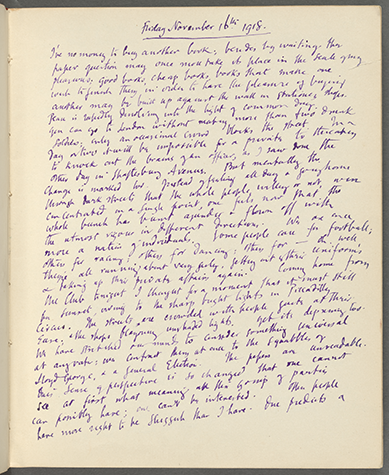 Friday November 16th 1918.
I've no money to buy another book; besides by waiting the
paper question may once more take its place in the scale of my
pleasures; good books, cheap books, books that make one
want to finish them in order to have the pleasure of buying
another may be built up against the wall in stationers' shops.
Peace is rapidly dissolving into the light of common day.
You can go to London without meeting more than two drunk
soldiers; only an occasional crowd blocks the street. In a
day or two it will be impossible for a private to threaten
to knock out the brains of an officer, as I saw done the
other day in Shaftesbury Avenue. But mentally the
change is marked too. Instead of feeling all day & going home
through dark streets that the whole people, willing or not, were
concentrated on a single point, one feels now that the
whole bunch has burst asunder & flown off with
the utmost vigour in different directions. We are once
more a nation of individuals. Some people care for football;
others for racing; others for dancing; others for — oh well,
they're all running about very gaily, getting out of their uniforms
& taking up their private affairs again. Coming home from
the Club tonight I thought for a moment that it must still
be sunset, owing to the sharp bright lights in Piccadilly
Circus. The streets are crowded with people quite at their
ease; & the shops blazoning unshaded lights. Yet it's depressing too.
We have stretched our minds to consider something universal
at any rate; we contract them at once to the squabbles of
Lloyd George, & a General Election. The papers are unreadable.
One's sense of perspective is so changed that one cannot
see at first what meaning all the gossip of parties
can possibly have; one can't be interested. Other people
have more right to be sluggish than I have. One predicts a